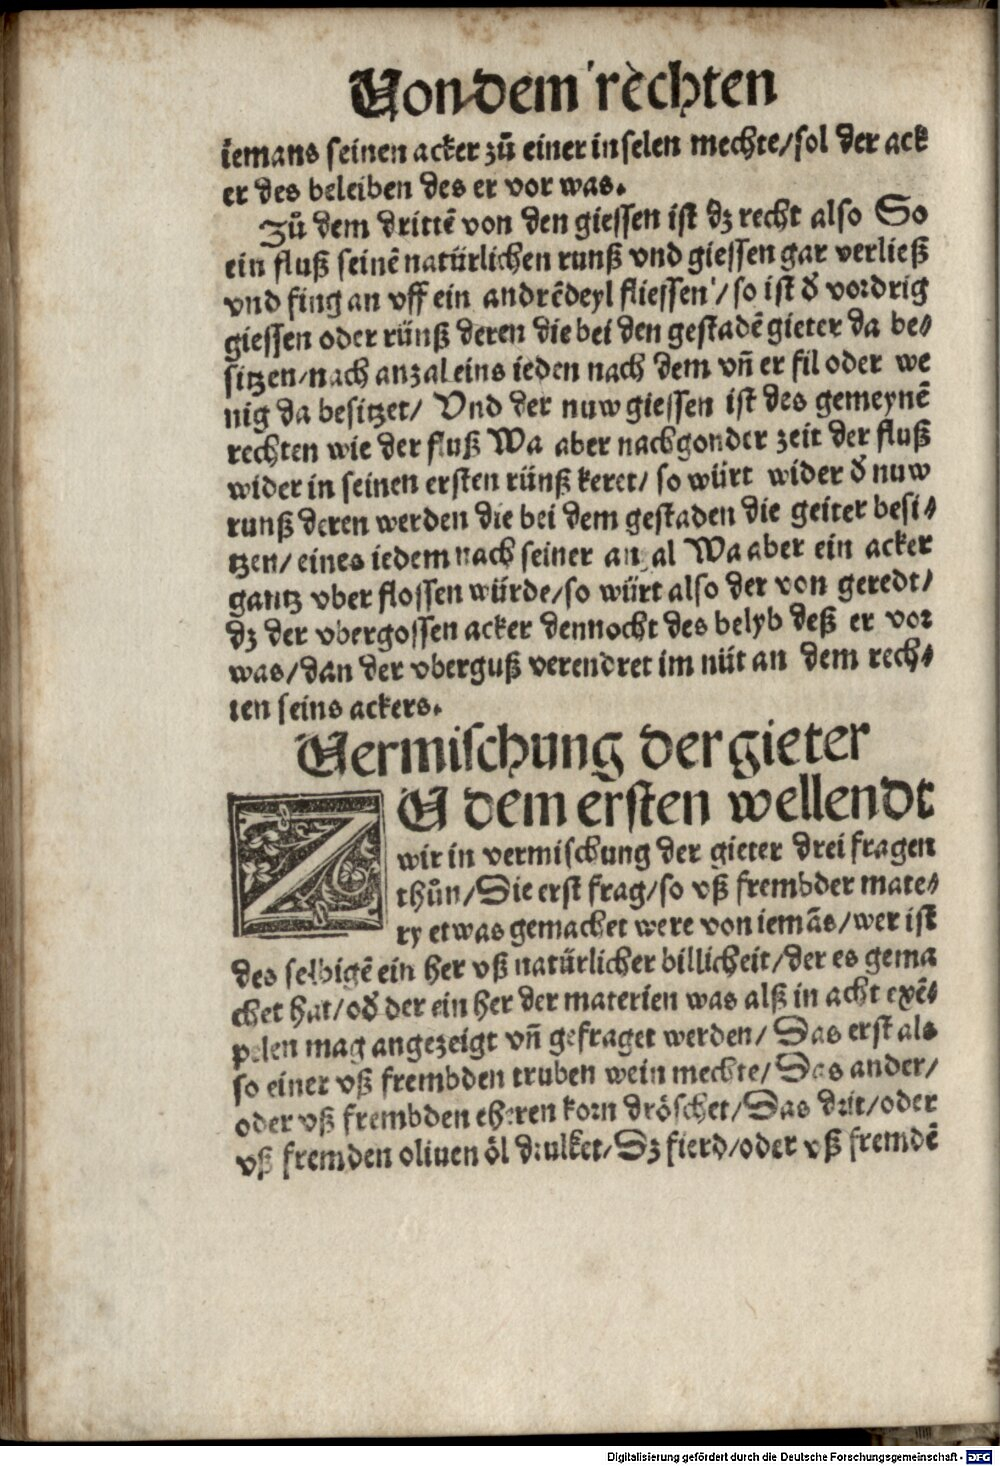 Von dem rechten
iemans seinen acker zů einer inselen mechte/sol der ack
er des beleiben des er vor was.
Zů dem drittē von den giessen ist dz recht also So
ein fluß seinē natürlichen runß vnd giessen gar verließ
vnd fing an vff ein andrēdeyl fliessen/so ist d̄ vordrig
giessen oder rünß deren die bei den gestadē gieter da be⸗
sitzen/nach anzal eins ieden nach dem vn̄ er fil oder we
nig da besitzet/ Vnd der nuw giessen ist des gemeynē
rechten wie der fluß Wa aber nachgonder zeit der fluß
wider in seinen ersten rünß keret/ so würt wider d̄ nuw
runß deren werden die bei dem gestaden die geiter besi⸗
tzen/ eines iedem nach seiner an al Wa aber ein acker
gantz vber flossen würde/so würt also der von geredt/
dz der vbergossen acker dennocht des belyb deß er vor
was/dan der vberguß verendret im nüt an dem rech⸗
ten seins ackers.
Vermischung der gieter
ZV dem ersten wellendt
wir in vermischung der gieter drei fragen
thůn/Die erst frag/so vß frembder mate⸗
ry etwas gemachet were von iemās/wer ist
des selbigē ein her vß natürlicher billicheit/der es gema
chet hat/od̄ der ein her der materien was alß in acht exē⸗
pelen mag angezeigt vn̄ gefraget werden/ Das erst als
so einer vß frembden truben wein mechte/ Das ander/
oder vß frembden eheren korn dröschet/Das drit/oder
vß fremden oliuen öl drulket/Dz fierd/oder vß fremdē
Digitalisierung gefördert durch die Deutsche Forschungsgemeinschaft - DFG